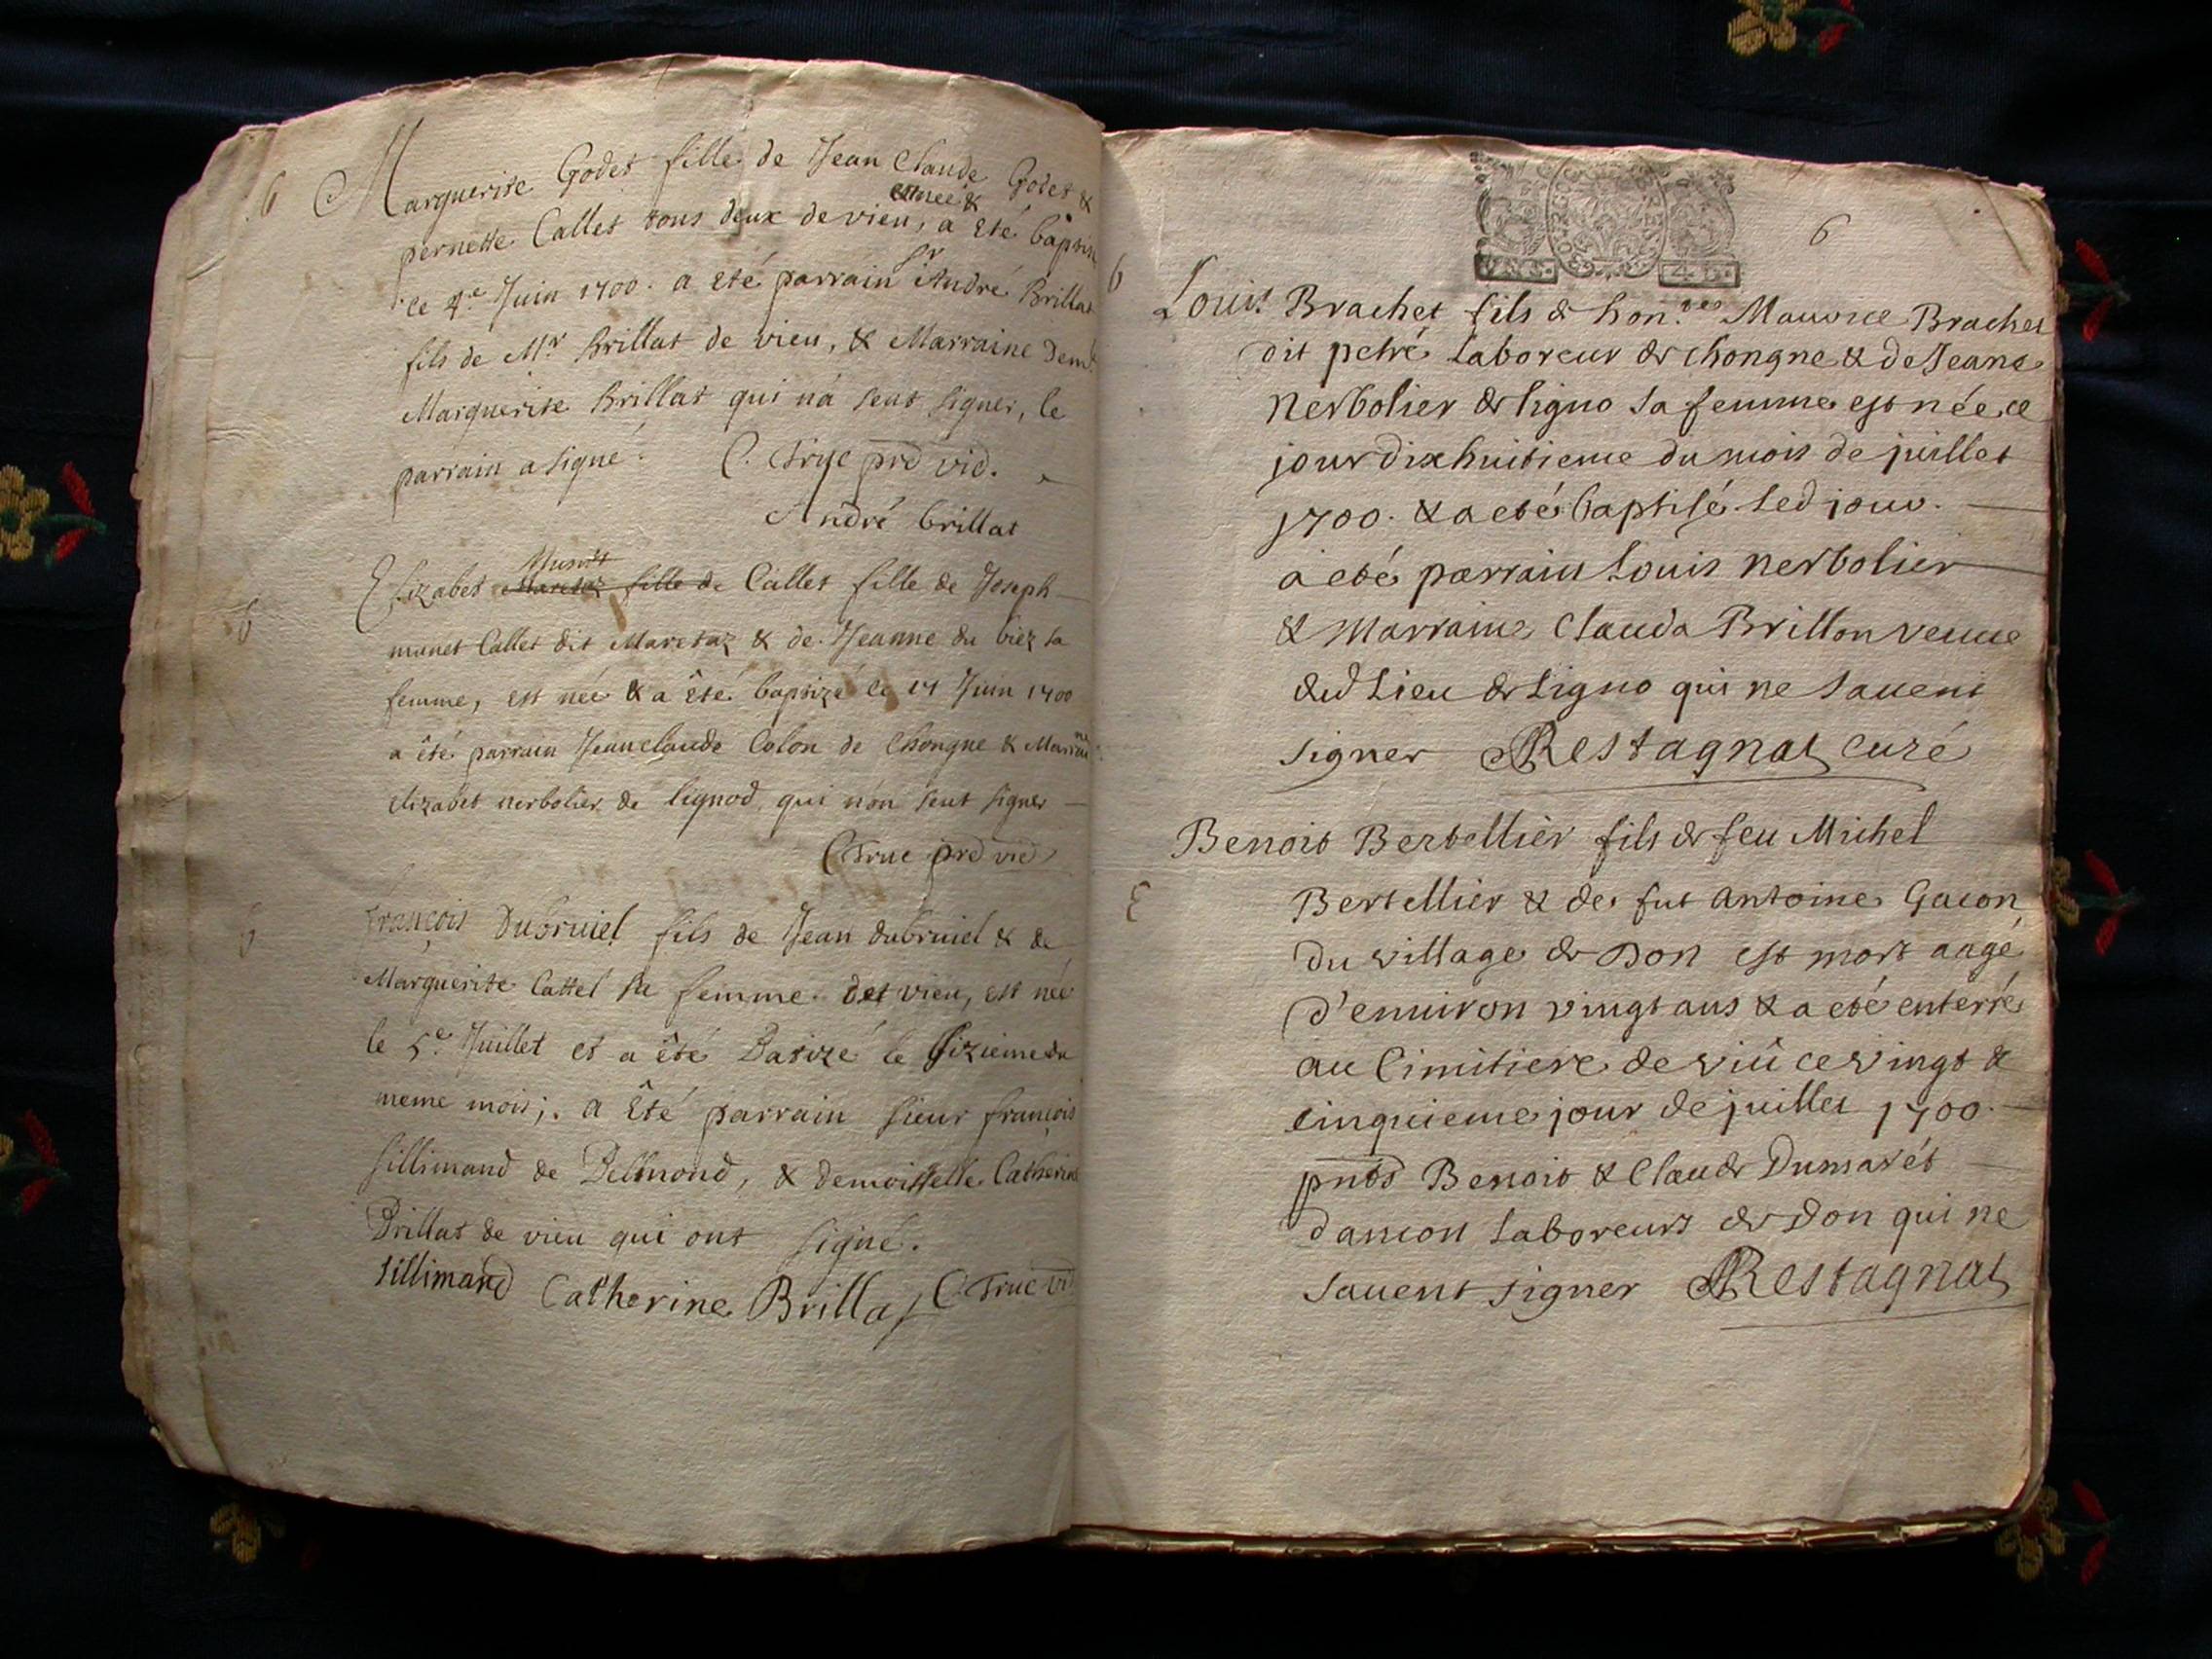 6 Marguerite Godet fille de Jean Claude Godet &
est née &
pernette Callet tous deux de vieu, a eté baptisé
ce 4.e Juin 1700. a eté parrain Sr André Brillat
fils de Mr Brillat de vieu, & Marraine dem.lle
Marguerite Brillat qui n'a seut signer, le
parrain a signé. C. truc prd vic.
André brillat
Musnet
6 Elizabet Maretaz fille de Callet fille de Joseph
munet Callet dit Maretaz & de Jeanne du biez sa
femme, est née & a êté baptizé le 17 Juin 1700
a êté parrain Jeanclaude Colon de Chongne & Marraine
elizabet nerbolier de lignod qui n'on seut signer
C truc prd vic
6 françois Dubruiel fils de Jean dubruiel & de
Marguerite Cattel sa femme de vieu, est née
le 5.e Juillet et a êté Batizé le sizieme du
meme mois; a êté parrain sieur françois
sillimand de Belmond, & demoisselle Catherine
Brillat de vieu qui ont signé.
sillimand Catherine Brillat C. Truc vic
6
6 Louis Brachet fils de hon.bles Maurice Brachet
dit petré laboreur de chongne & de Jeane
Nerbolier de ligno sa femme est née ce
jour dixhuitieme du mois de juillet
1700. & a eté baptisé led jour.
a eté parrain Louis Nerbolier
& Marraine Clauda Brillon veuue
dud lieu de Ligno qui ne sauent
signer Restagnat curé
Benoit Bertellier fils de feu Michel
E Bertellier & de fut Antoine Gacon
du village de Don est mort aagé
d'enuiron vingt ans & a eté enterré
au Cimitiere de viû ce vingt &
cinquieme jour de juillet 1700.
pnts Benoit & Claude Dumarét
dancon laboreurs de Don qui ne
sauent signer Restagnat